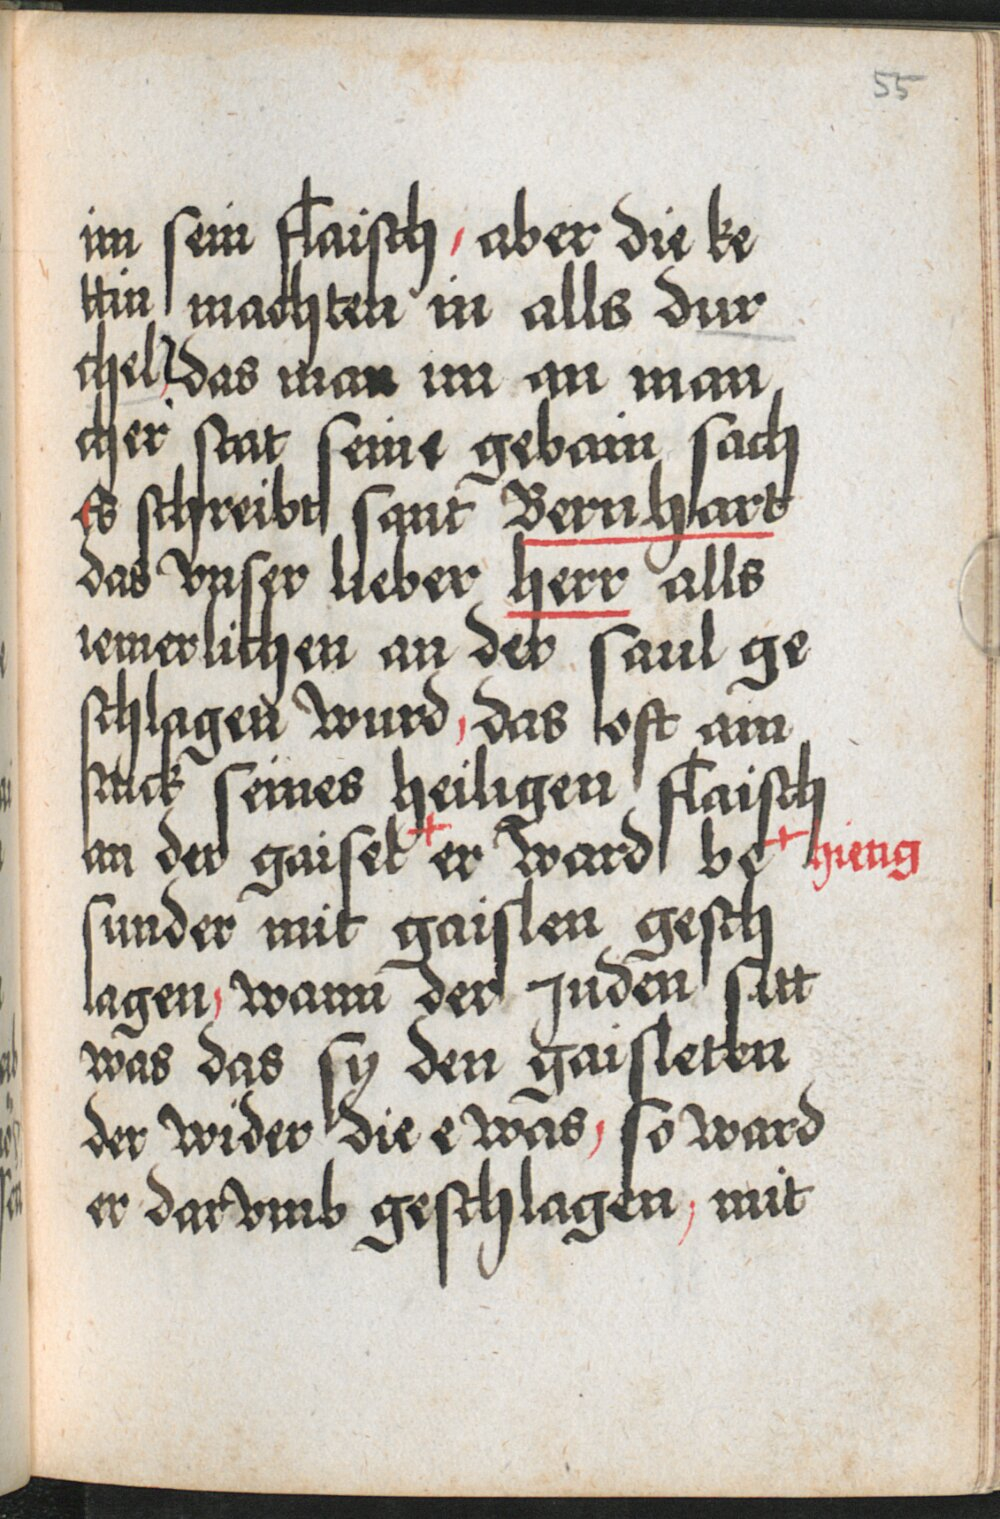 55
im sein flaisch, aber die ke
ttin machten in alls dur
chel, das man im an man
cher stat seine gebain sach
Es schreibt sant Bernhart
das vnser lieber herr alls
iemerlichen an der saul ge
schlagen wurd, das oft ain
stuck seines heiligen flaisch
an der gaisel + er ward be + hieng
sunder mit gaislen gesch
lagen, wann der Juden sitt
was das sy den gaisleten
der wider die e was, so ward
er darvmb geschlagen, mit